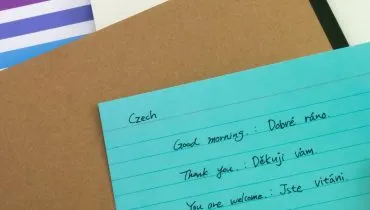 Czech
Good morning. : Dobré ráno.
Thank you. : Děkuji vám.
You are welcome. : Jste vítáni.